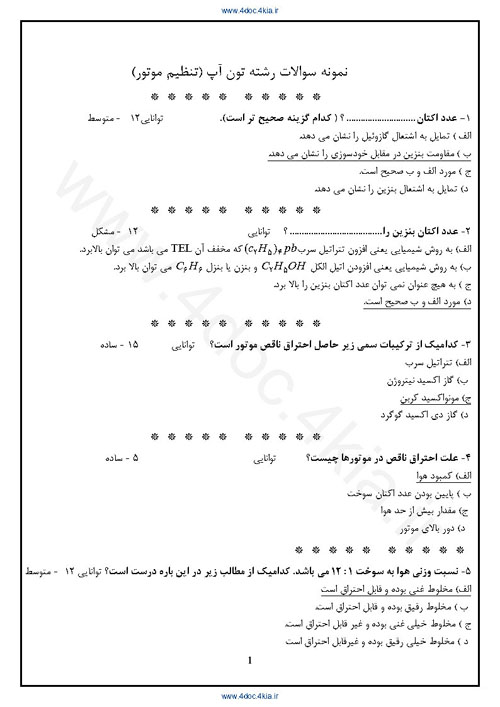 www.4doc.4kia.ir
نمونه سوالات رشته تون آپ (تنظیم موتور)
۱- عدد اکتان............................ ؟ ( کدام گزینه صحیح تر است). توانایی۱۲ - متوسط
الف ) تمایل به اشتعال گازوئیل را نشان می دهد.
ب ) مقاومت بنزین در مقابل خودسوزی را نشان می دهد.
ج ) مورد الف و ب صحیح است.
د) تمایل به اشتعال بنزین را نشان می دهد.
۲- عدد اکتان بنزین را.................................... ؟ توانایی ۱۲ - مشکل
الف) به روش شیمیایی یعنی افزون تتراتیل سرب (c₂H₅)₄pb که مخفف آن TEL می باشد می توان بالابرد.
ب) به روش شیمیایی یعنی افزودن اتیل الکل C₂H₅OH و بنزن یا بنزل C₆H₆ می توان بالا برد.
ج ) به هیچ عنوان نمی توان عدد اکتان بنزین را بالا برد.
د) مورد الف و ب صحیح است.
۳- کدامیک از ترکیبات سمی زیر حاصل احتراق ناقص موتور است؟ توانایی ۱۵ - ساده
الف) تتراتیل سرب
ب) گاز اکسید نیتروژن
ج) مونواکسید کربن
د) گاز دی اکسید گوگرد
۴- علت احتراق ناقص در موتورها چیست؟ توانایی ۵ - ساده
الف) کمبود هوا
ب ) پایین بودن عدد اکتان سوخت
ج) مقدار بیش از حد هوا
د) دور بالای موتور
۵- نسبت وزنی هوا به سوخت ۱ : ۱۲ می باشد. کدامیک از مطالب زیر در این باره درست است؟ توانایی ۱۲ - متوسط
الف) مخلوط غنی بوده و قابل احتراق است
ب ) مخلوط رقیق بوده و قابل احتراق است.
ج ) مخلوط خیلی غنی بوده و غیر قابل احتراق است.
د ) مخلوط خیلی رقیق بوده و غیرقابل احتراق است
1
www.4doc.4kia.ir
www.4doc.4kia.ir